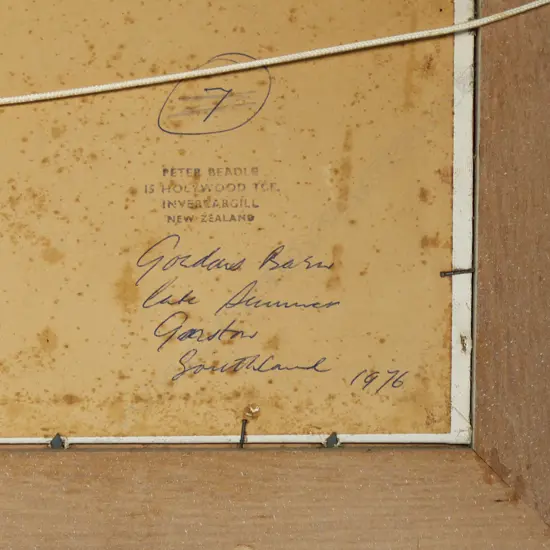 7
PETER BEADLE
15 HOLYWOOD TCE.
INVERCARGILL
NEW ZEALAND
Gordons Barn
late Summer
Garston
Southland 1976